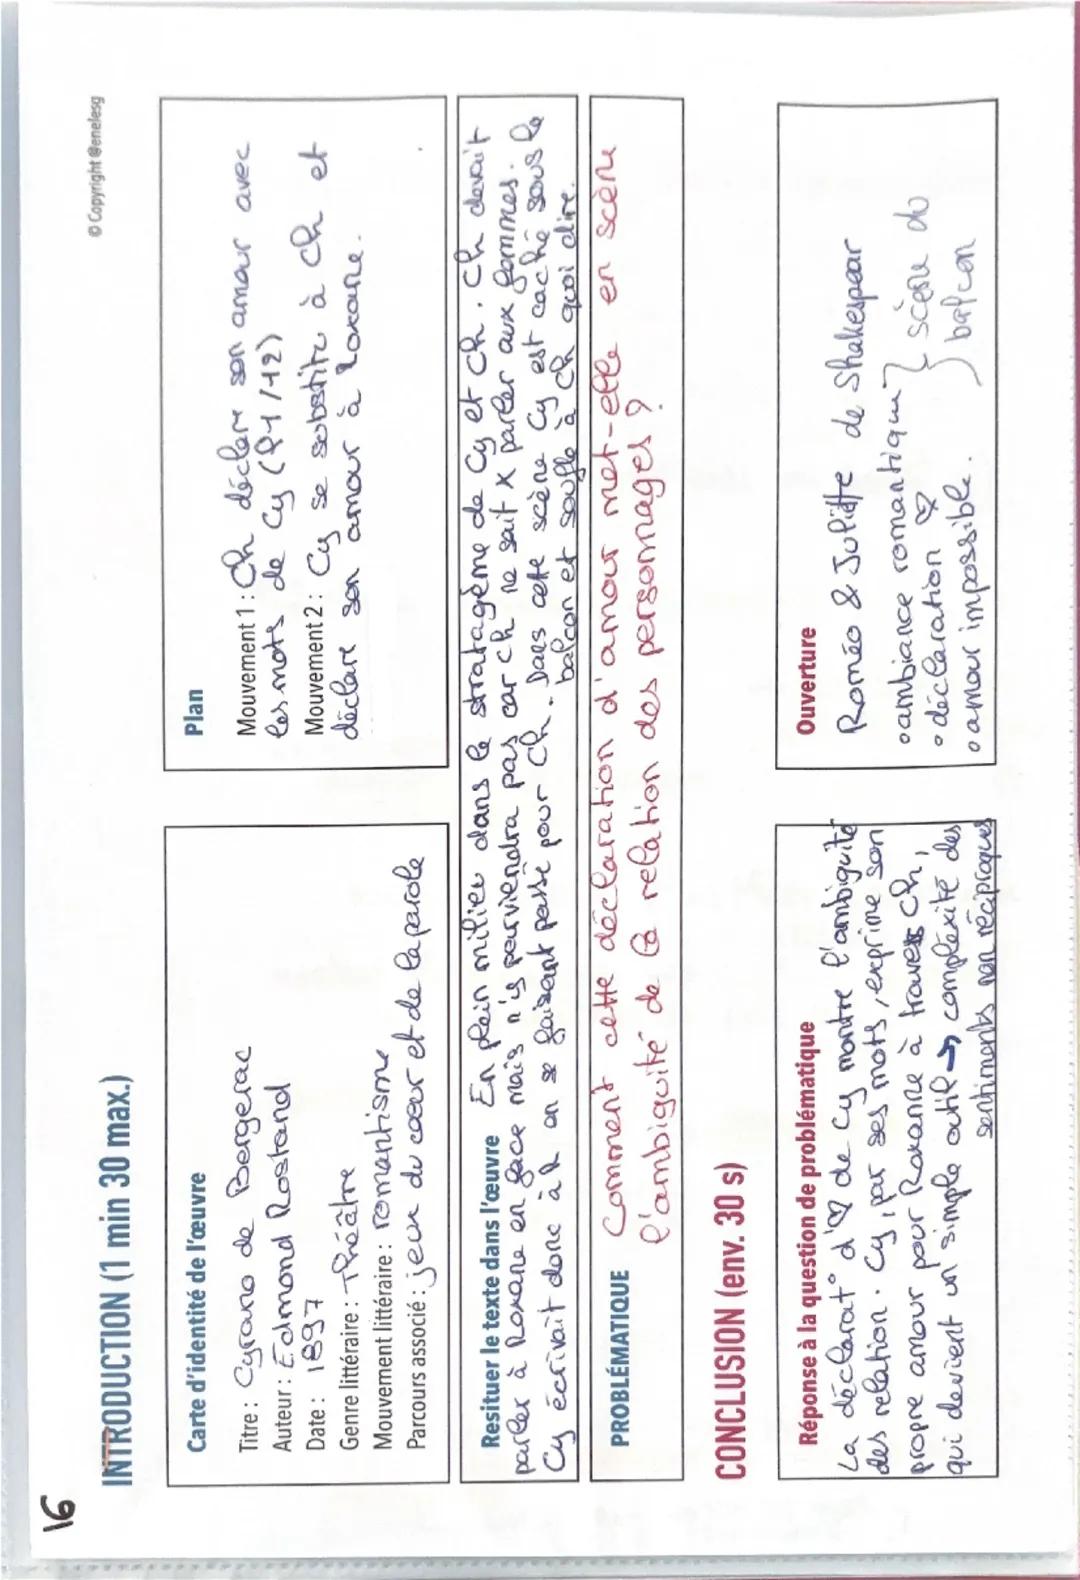 16
© Copyright @enelesg
INTRODUCTION (1 min 30 max.)
Carte d'identité de l'œuvre
Titre : Cyrano de Bergerac
Auteur : Edmond Rostand
Date : 1897
Genre littéraire : Théâtre
Mouvement littéraire : romantisme
Parcours associé : jeux du cœur et de la parole
Plan
Mouvement 1 : Ch déclare son amour avec
les mots de Cy (l 1/12)
Mouvement 2 : Cy se substitu à Ch et
déclare son amour à Roxane.
Resituer le texte dans l'œuvre En plein milieu dans le stratagème de Cy et Ch. Ch devait
parler à Roxane en face mais n'y parviendra pas car ch ne sait x parler aux femmes.
Cy écrivait donc à R en se faisant passé pour Ch. Dans cete scène Cy est caché sous le
balcon et souffle à Ch quoi dire.
PROBLÉMATIQUE Comment cette déclaration d'amour met-elle en scène
l'ambiguité de la relation des personnages ?
CONCLUSION (env. 30 s)
Réponse à la question de problématique
La déclarat° d'♡ de Cy montre l'ambiguité
des relation. Cy, par ses mots, exprime son
propre amour pour Roxanne à travers Ch,
qui devient un simple outil → compléxité des
sentiments non réciproques
Ouverture
Roméo & Juliette de Shakespear
° ambiance romantique } scène du
• déclaration ♡ } balcon
° amour impossible.